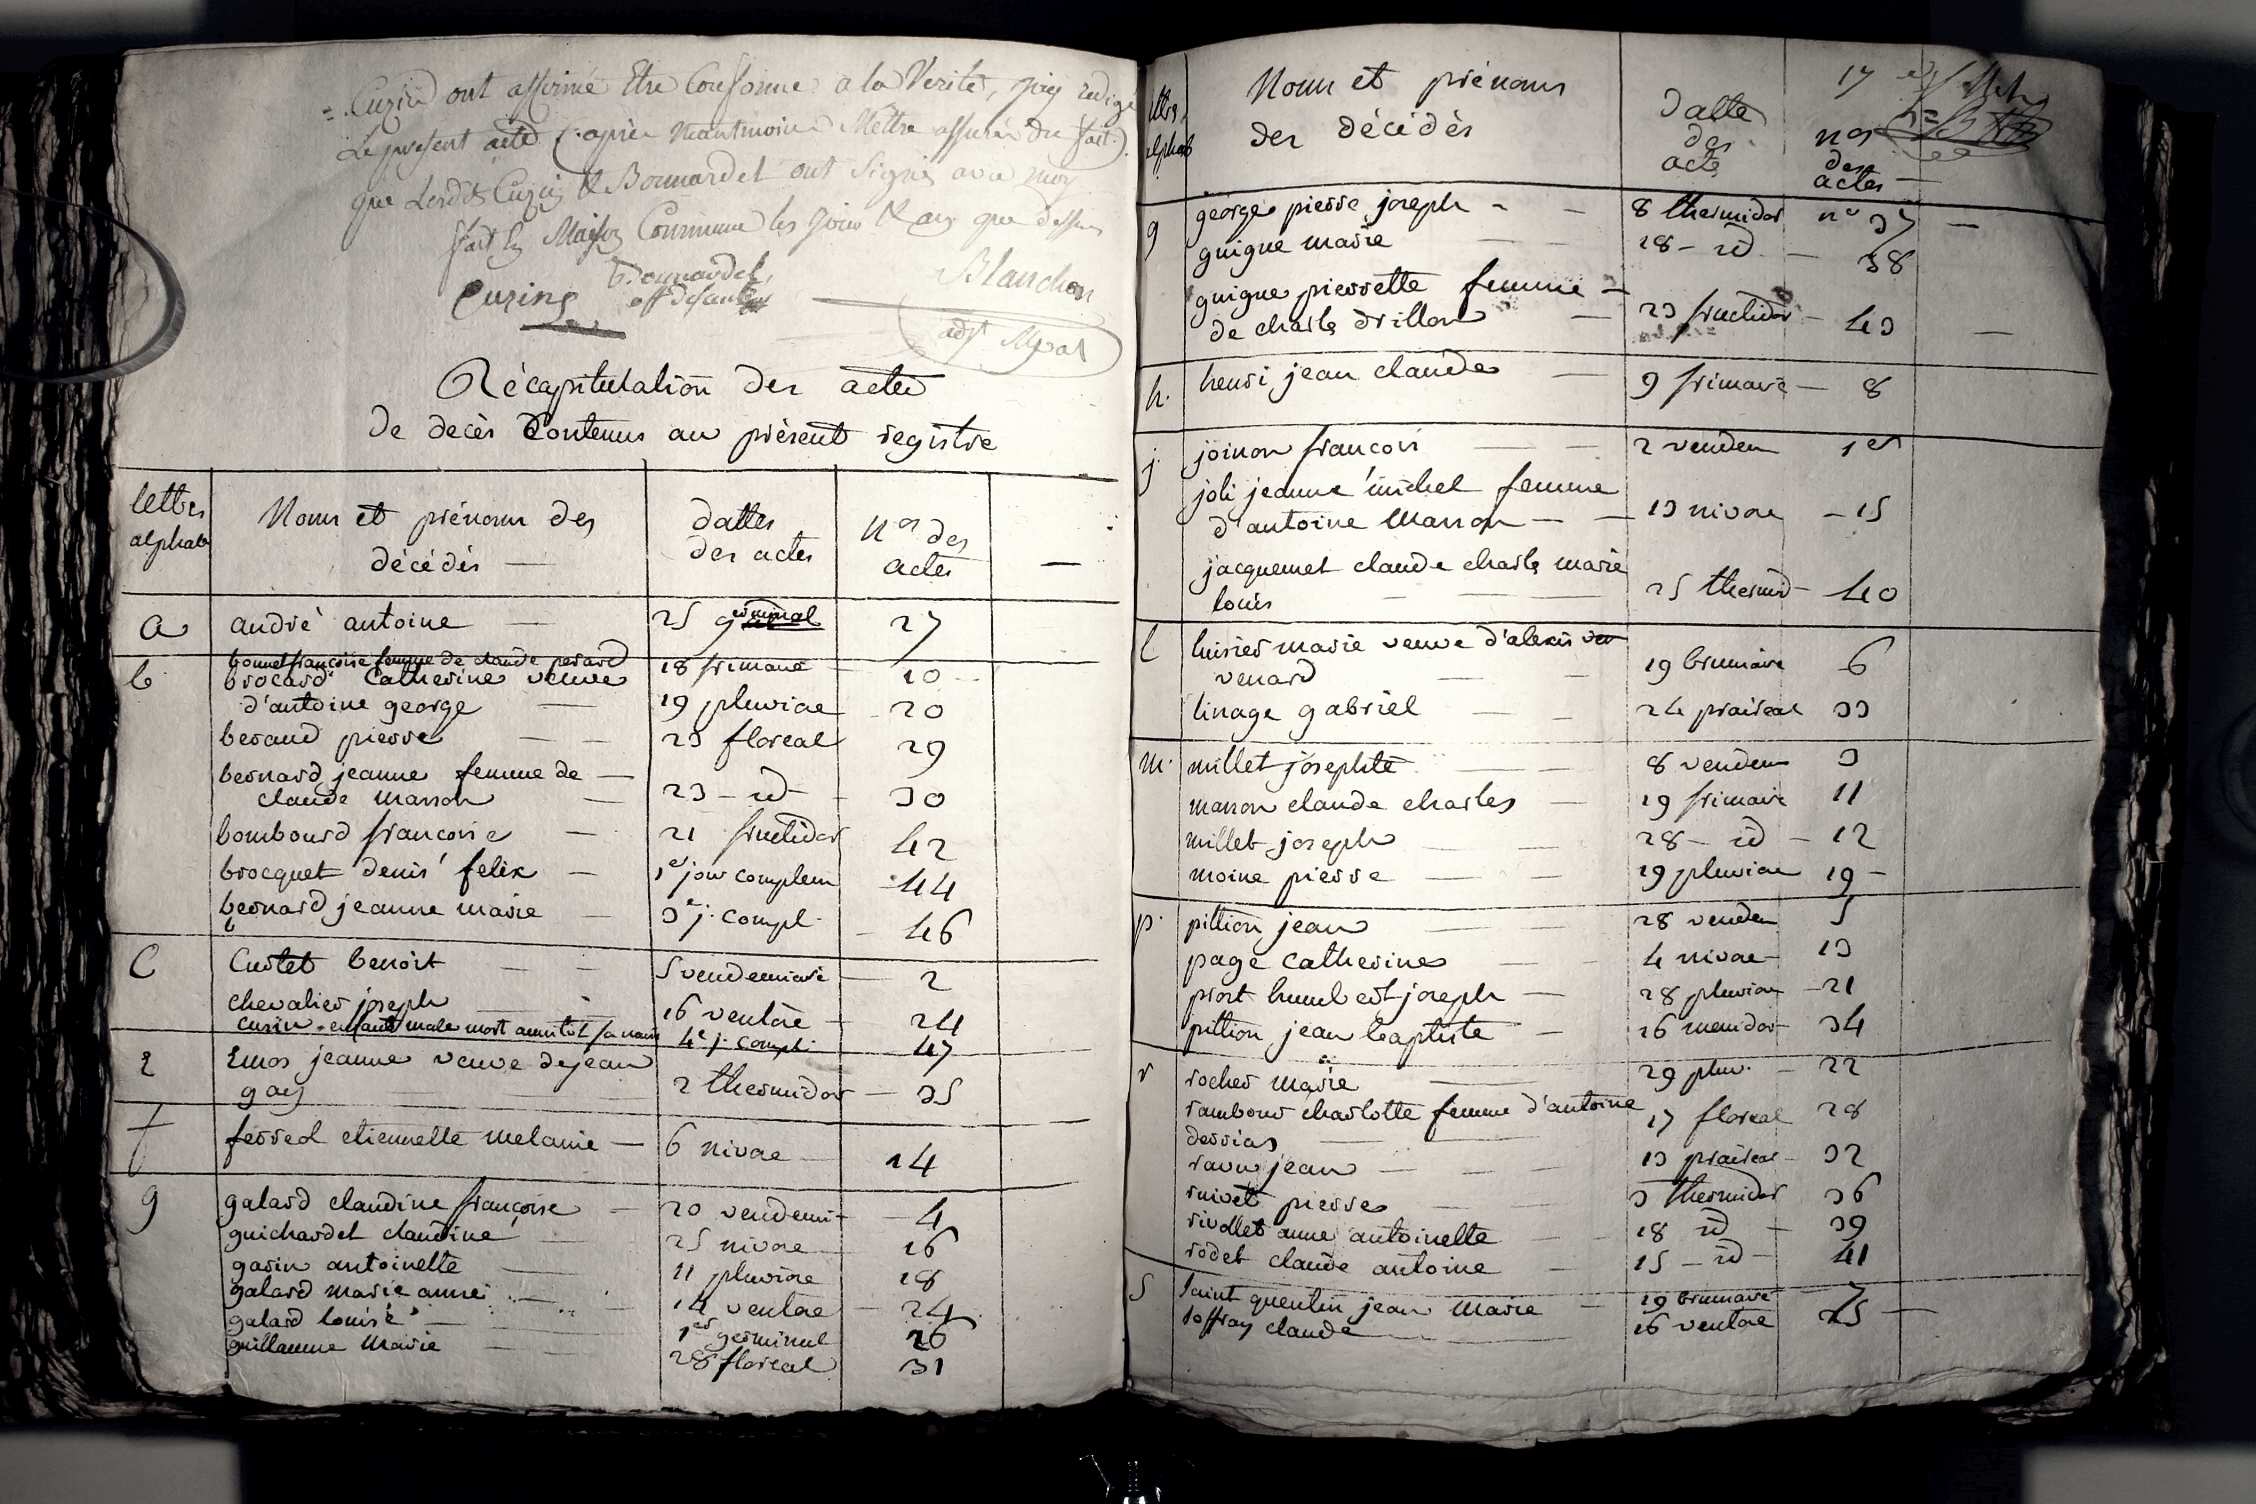 Cuzin ont affirmé Etre Conforme a la Verité, j'ay redigé
Le present acte (après Mautmoins Mettre assuré du fait)
que Lesdts Cuzin & Bonnardel ont Signés avec moy
fait En Maison Commune les jour & an que dessus
Curing Bonnardel Blanchon
off de santé
adjt Mpal
Récapitulation der actes
De decès Contenus au présent registre
lettres Noms et prénoms des dattes nos des
alphab décédés — des actes actes —
a andré antoine — 25 germinal 27
b bonnet françoise femme de claude perard 18 frimaire 10
brocard Catherine veuve
d'antoine george — 19 pluviae 20
beraud pierre — — 23 floreal 29
bernard jeanne femme de —
claude marron — 23 — id — 30
bombourd francoise — 21 fructidor 42
brocquet denis felix — 1er jour complem 44
bernard jeanne marie — 3e j. compl. 46
C Curtet benoist — — 5 vendemiaire 2
chevalier joseph 16 ventose 24
curin - enfant male mort aussitôt sa nais 4e j. compl. 47
E Emos jeanne veuve de jean
gay 2 thermidor — 35
f ferred etiennette melanie — 6 nivose — 14
g galard claudine françoise — 20 vendemi — 4
guichardet claudine — 25 nivose — 16
garin antoinette — 11 pluviose 18
galard marie anne — 14 ventose — 24
galard louise — 1er germinal 26
guillaume marie — — 28 floreal 31
17
lttres Noms et prénoms datte nos
alphab der décédés des des
acte actes —
g george pierre joseph — — 8 thermidor no 37 —
guigue marie — — 28 — id — 38
guigue pierrette femme —
de charles drillon — 23 fructidor — 43 —
h. henri jean claude — 9 frimaire — 8
j. joinon francois — — 2 vendem 1er
joli jeanne michel femme
d'antoine Marron — — 13 nivose — 15
jacquemet claude charles marie
louis — — 25 thermid — 40
l luisier marie veuve d'alexis ven
venard — — 19 brumaire 6
linage gabriel — — 24 prairial 33
m. millet josephte — — 8 vendem 3
marron claude charles — 19 frimaire 11
millet joseph — — 28 — id — 12
moine pierre — — 19 pluviose 19 —
p. pittion jean — — 28 vendem 5
page Catherine — — 4 nivose — 13
prost humbert joseph — 28 pluviose — 21
pittion jean baptiste — 26 messidor 34
r rocher marie — 29 pluv. — 22
rambour charlotte femme d'antoine
derrias — 17 floreal 28
ravu jean — — — 13 prairial — 32
ruivet pierre — — 3 thermidor 36
rivollet anne antoinette — — 18 id — 39
rodet claude antoine — 15 — id — 41
S Saint quentin jean Marie — 19 brumaire 7
Soffray claude — 16 ventose 25 —